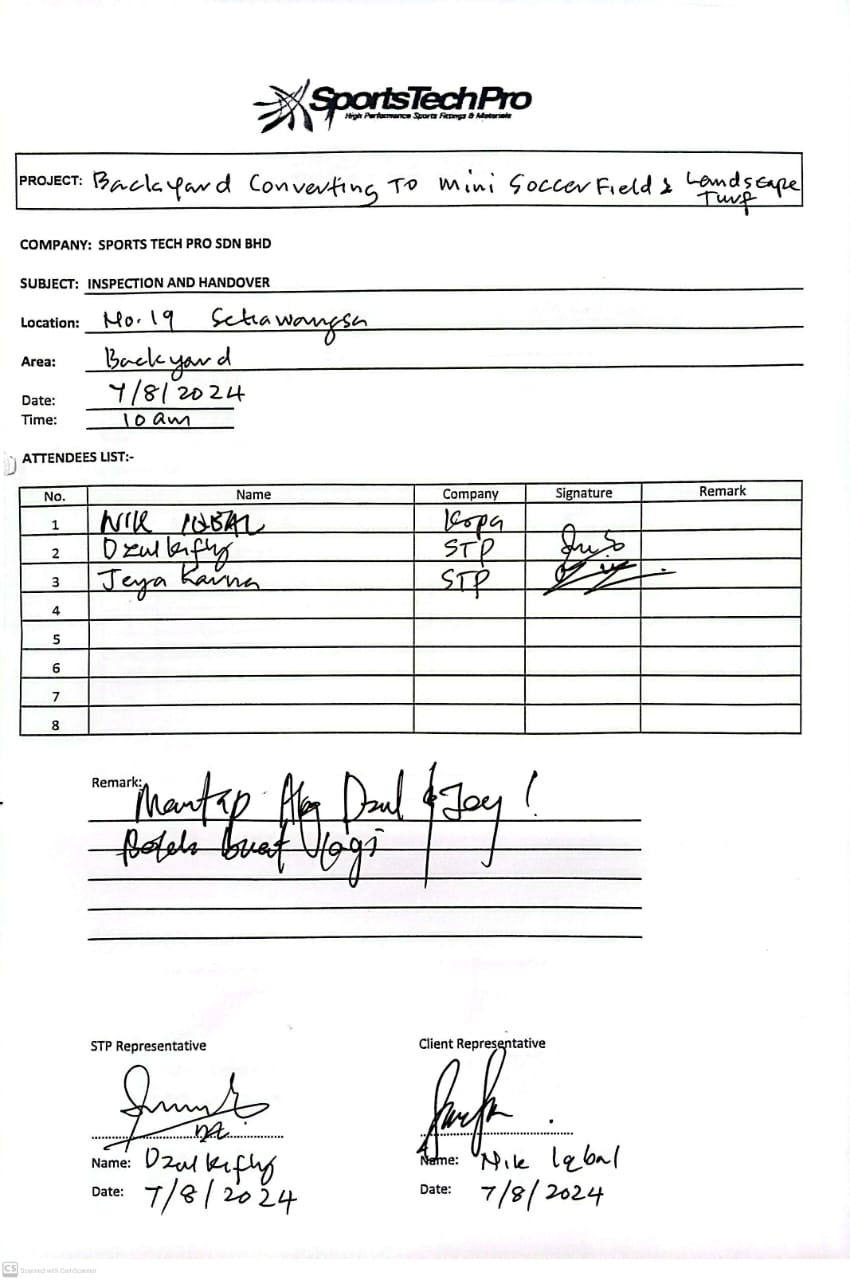 SportsTechPro
High Performance Sports Fittings & Materials
PROJECT: Backyard Converting To mini Soccer Field & Landscape
Turf
COMPANY: SPORTS TECH PRO SDN BHD
SUBJECT: INSPECTION AND HANDOVER
Location: No. 19 Setiawangsa
Area: Backyard
Date: 7/8/2024
Time: 10 am
ATTENDEES LIST:-
No. Name Company Signature Remark
1 NIK IQBAL
2 Dzulkifly STP
3 Jeya Kanna STP
4
5
6
7
8
Remark: Mantap Dzul & Joey !
Boleh buat lagi
STP Representative Client Representative
Name: Dzulkifly Name: Nik Iqbal
Date: 7/8/2024 Date: 7/8/2024
CS Scanned with CamScanner